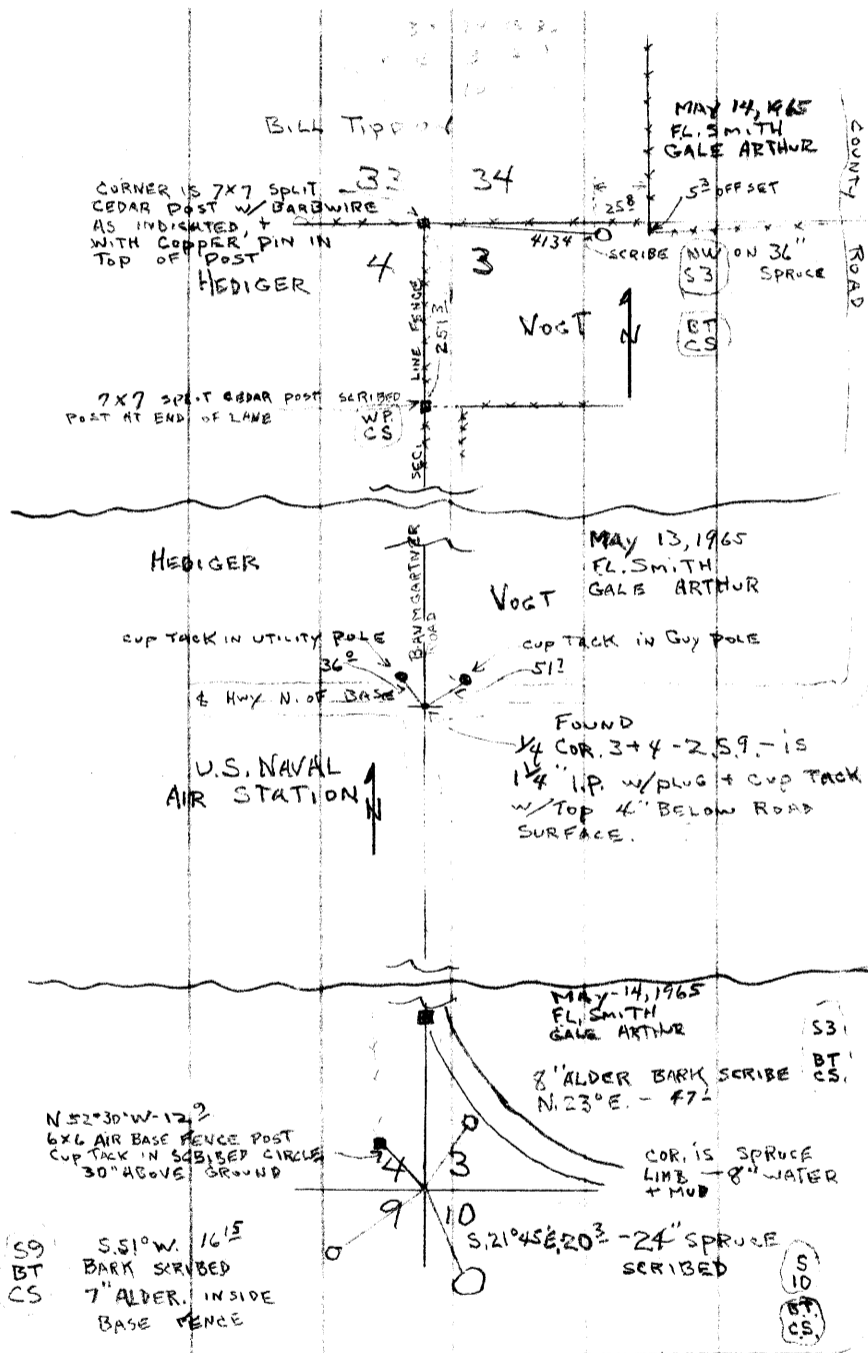 BILL
MAY 14, 1965
F.L. SMITH
GALE ARTHUR
COUNTY ROAD
33 34
4 3
CORNER IS 7X7 SPLIT
CEDAR POST W/ BARBWIRE
AS INDICATED, +
WITH COPPER PIN IN
TOP OF POST
HEDIGER
25⁸
5³ OFFSET
4134
SCRIBE NW ON 36"
S3 SPRUCE
BT
CS
VOGT
N
SEC. LINE FENCE
251³
7X7 SPLIT CEDAR POST SCRIBED
POST AT END OF LANE
WP
CS
HEDIGER
BAUMGARTNER
ROAD
MAY 13, 1965
F.L. SMITH
GALE ARTHUR
VOGT
CUP TACK IN UTILITY POLE
36⁰
CUP TACK IN GUY POLE
51
HWY N. OF BASE
U.S. NAVAL
AIR STATION
N
FOUND
1/4 COR. 3+4 - 2.S.9. - IS
1 1/4" I.P. W/PLUG + CUP TACK
W/TOP 4" BELOW ROAD
SURFACE.
MAY-14, 1965
F.L. SMITH
GALE ARTHUR
S3
BT
CS.
8" ALDER BARK SCRIBE
N. 23° E. -
N 52°30' W - 12⁹
6X6 AIR BASE FENCE POST
CUP TACK IN SCRIBED CIRCLE
30" ABOVE GROUND
4 3
9 10
COR. IS SPRUCE
LIMB - 8" WATER
+ MUD
S9
BT
CS
S.51° W. 16¹⁵
BARK SCRIBED
7" ALDER. INSIDE
BASE FENCE
S. 21°45'E, 20³ - 24" SPRUCE
SCRIBED
S
10
BT
CS